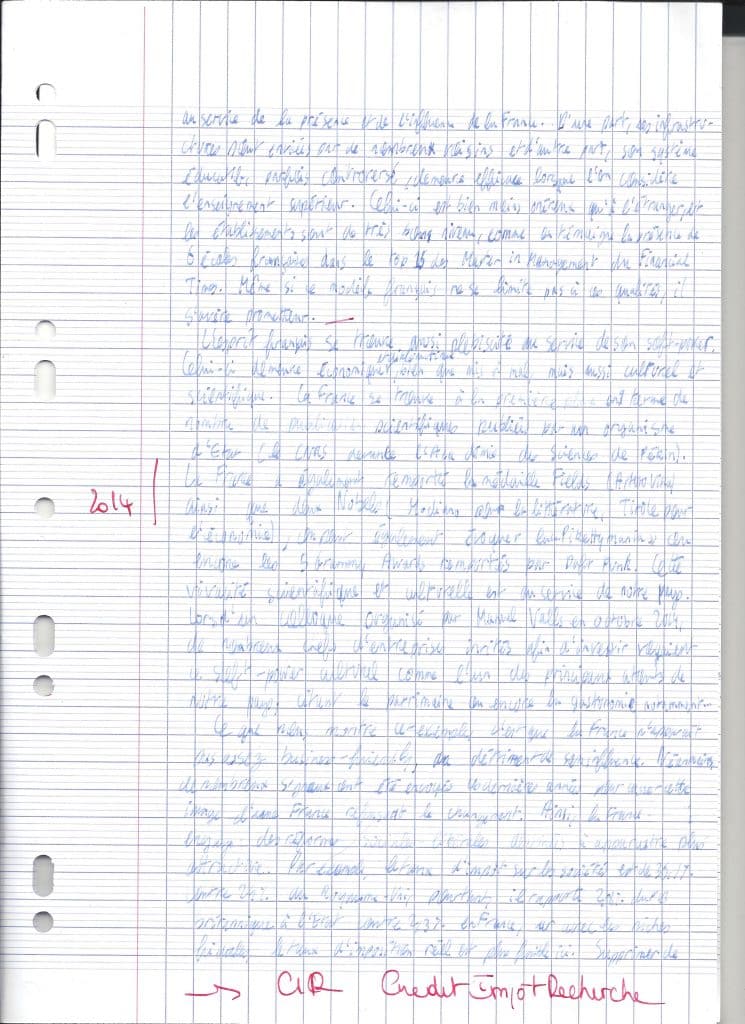 au service de la présence et de l'influence de la France. D'une part, ses infrastru-
ctures sont enviées par de nombreux voisins et d'autre part, son système
éducatif, parfois controversé, demeure efficace lorsque l'on considère
l'enseignement supérieur. Celui-ci est bien moins onéreux qu'à l'étranger, et
les établissements sont de très bons niveaux, comme en témoigne la présence de
6 écoles françaises dans le top 15 des Master in Management du Financial
Times. Même si le modèle français ne se limite pas à ces qualités, il
s'avère prometteur.
L'esprit français se trouve aussi plébiscité au service de son soft-power.
Celui-ci demeure économique, diplomatique bien que mis à mal, mais aussi culturel et
scientifique. La France se trouve à la première place en terme de
nombre de publications scientifiques publiées par un organisme
d'Etat (le CNRS devance l'Académie des Sciences de Pékin).
2014
La France a également remporté la médaille Fields (Artur Avila)
ainsi que deux Nobels (Modiano pour la littérature, Tirole pour
l'économie), on peut également évoquer la Pikettymania ou
encore les 5 Grammy Awards remportés par Daft Punk. Cette
vivacité scientifique et culturelle est au service de notre pays.
Lors d'un colloque organisé par Manuel Valls en octobre 2014,
de nombreux chefs d'entreprise invités afin d'investir voyaient
le soft-power culturel comme l'un des principaux atouts de
notre pays, citant le patrimoine ou encore la gastronomie notamment.
Ce que nous montre ce exemple, c'est que la France n'apparait
pas assez business-friendly, au détriment de son influence. Néanmoins
de nombreux signaux ont été envoyés ces dernières années pour casser cette
image d'une France refusant le changement. Ainsi la France
engage des réformes libérales destinées à apparaitre plus
attractive. Par exemple, le taux d'impôt sur les sociétés est de
contre 24% au Royaume-Uni, pourtant, il rapporte du
britannique à l'Etat contre 2,3% en France, car avec les niches
fiscales, le taux d'imposition réel est plus faible ici. Supprimer de
→ CIR Credit Impot Recherche